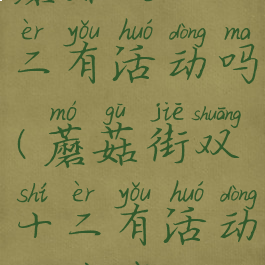 èr yǒu huó dòng ma
二有活动吗
mó gū jiē shuāng
(蘑菇街双
shí èr yǒu huó dòng
十二有活动